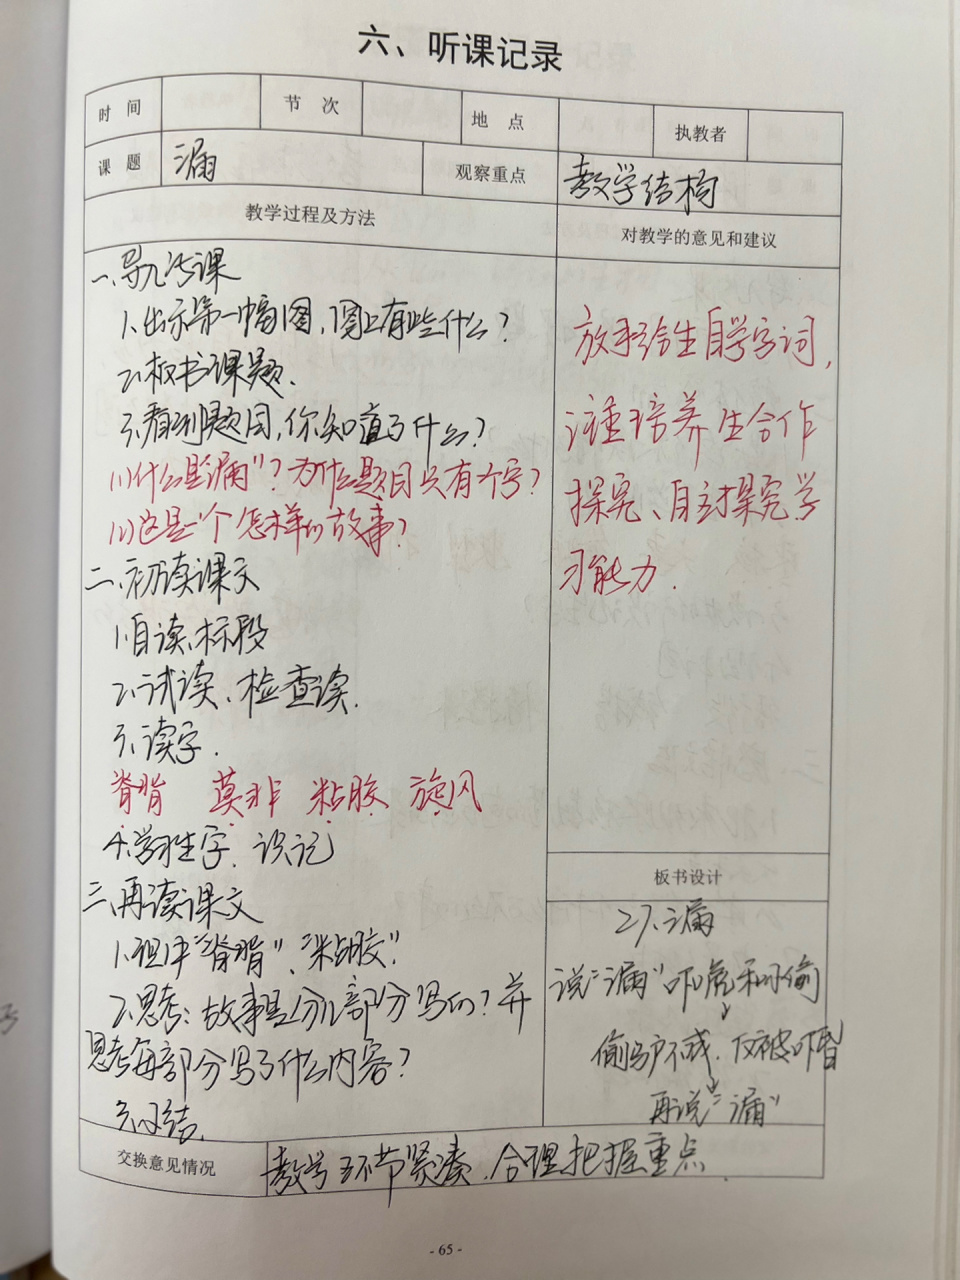 六、听课记录
时 间 节 次 地 点 执教者
课 题 漏 观察重点 教学结构
教学过程及方法 对教学的意见和建议
一、导入新课
1.出示第一幅图,图上有些什么?
2.板书课题.
3.看到题目,你知道了什么?
(1)什么是“漏”?为什么题目只有个字?
(2)这是一个怎样的故事?
二、初读课文
1.自读,标段
2.试读、检查读.
3.读字.
脊背 莫非 粘胶 旋风
4.学习生字、识记
三、再读课文
1.理解“脊背”、“粘胶”.
2.思考:故事是分几部分写的?并
思考每部分写了什么内容?
3.小结.
放手给生自学字词,
注重培养生合作
探究、自主探究学
习能力.
板书设计
27.漏
说“漏”吓虎和小偷
↓
偷驴不成,反被吓昏
↓
再说“漏”
交换意见情况 教学环节紧凑.合理把握重点
- 65 -